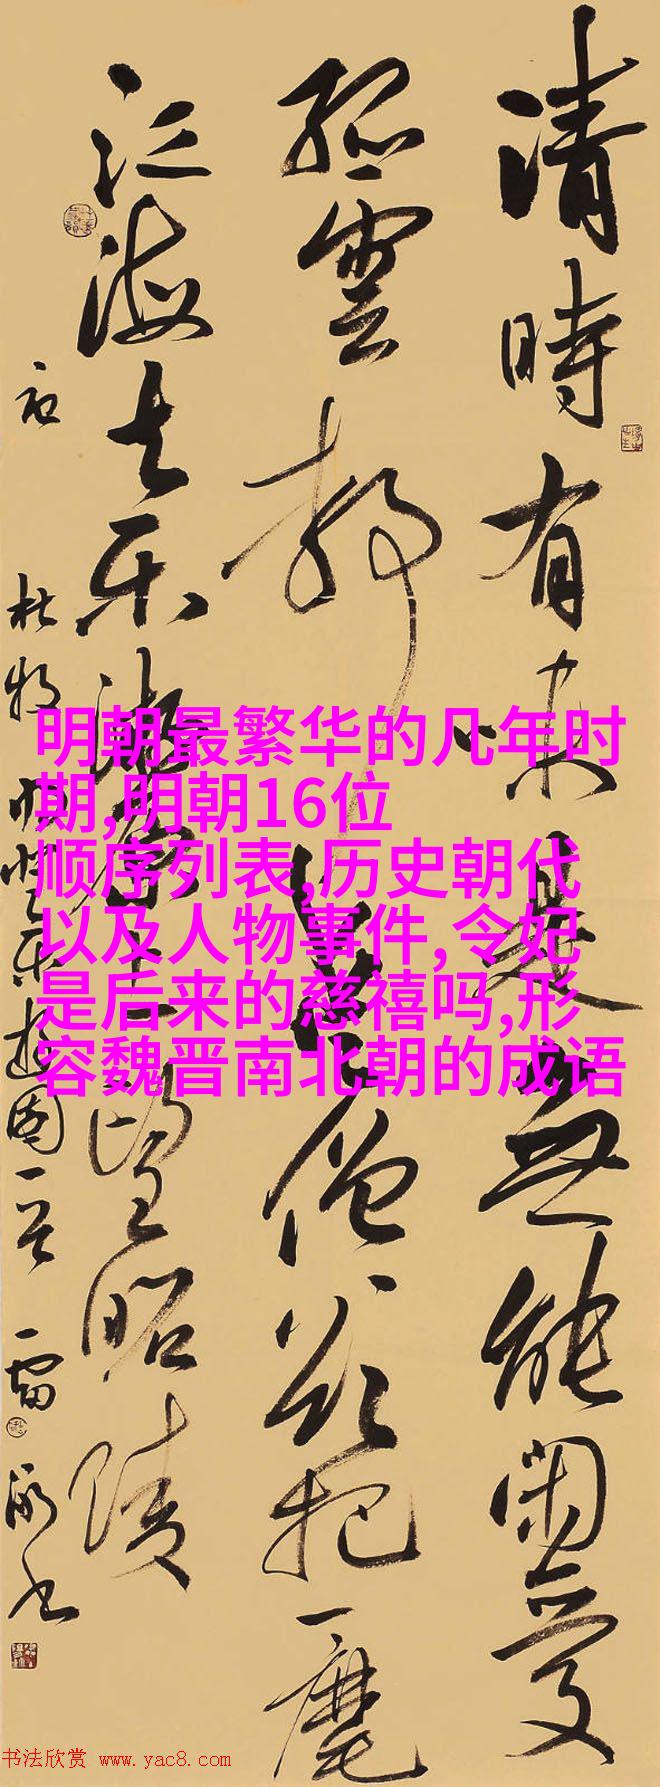 清時有味是無能閑愛
孤雲静愛僧欲把一麾
江海去乐游原上望昭陵
杜牧
乐遊
雷
书
明朝最繁华的几年时
期,明朝16位
顺序列表,历史朝代
以及人物事件,令妃
是后来的慈禧吗,形
容魏晋南北朝的成语
书法欣赏 www.yac8.com